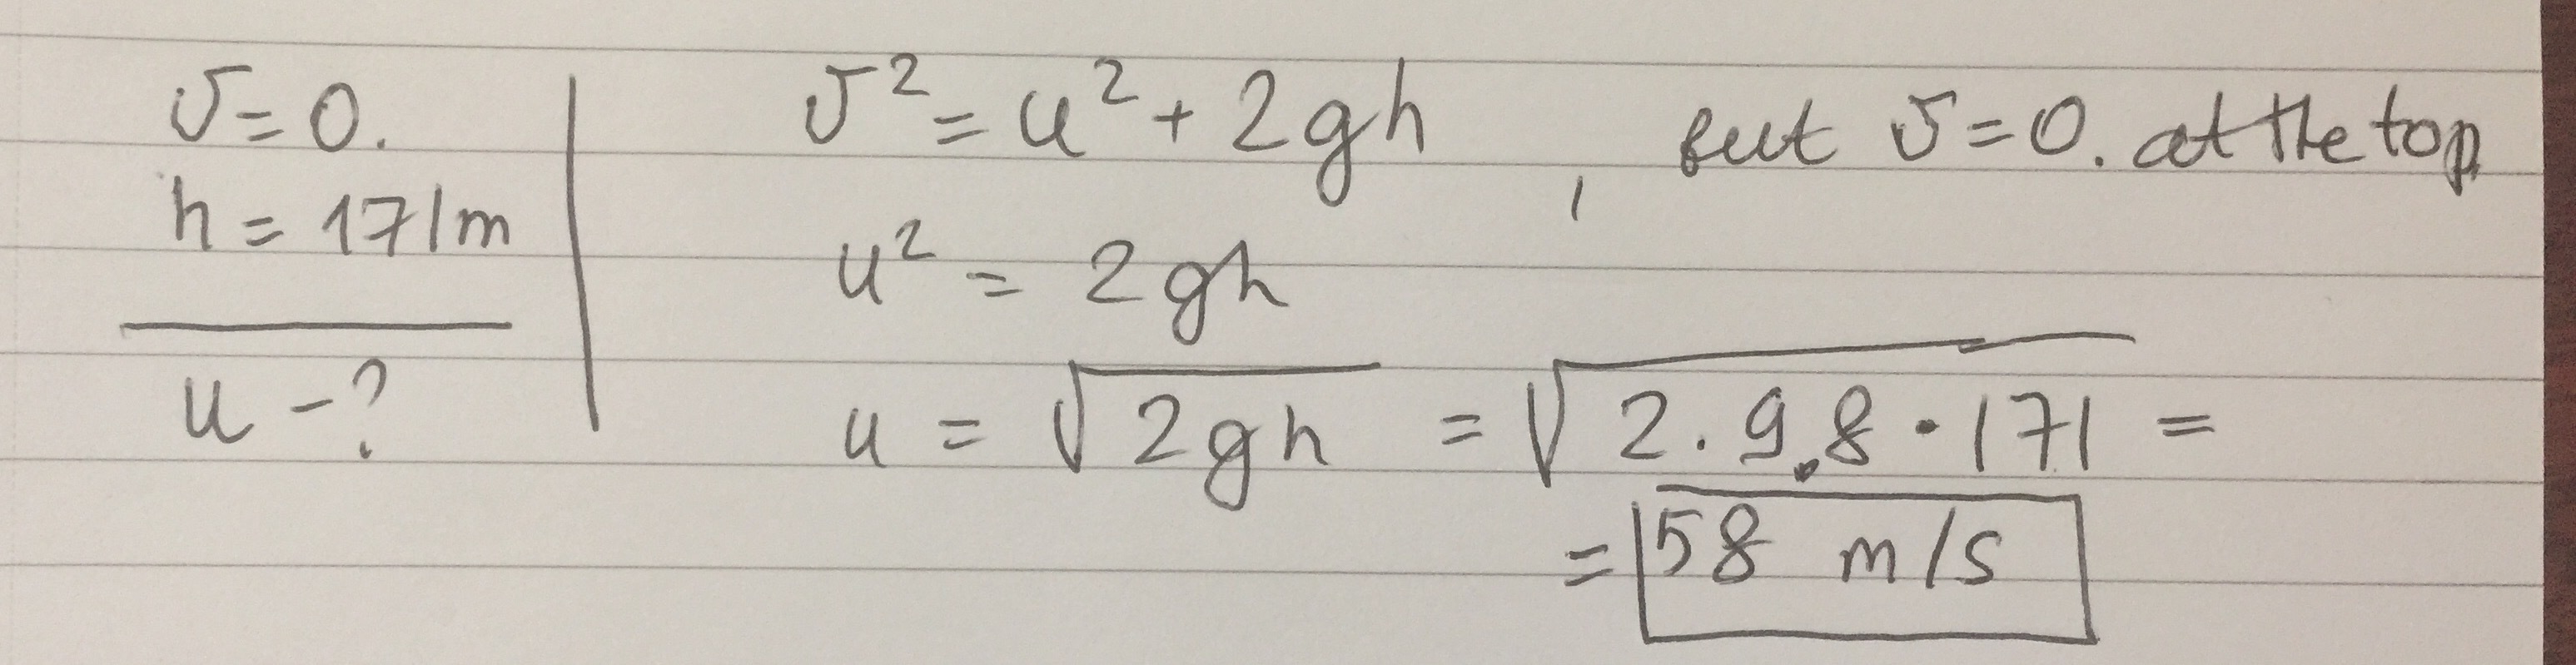 v = 0.
h = 171m
u - ?
v² = u² + 2gh , but v = 0. at the top
u² = 2gh
u = √2gh = √2 . 9.8 · 171 =
= 58 m/s